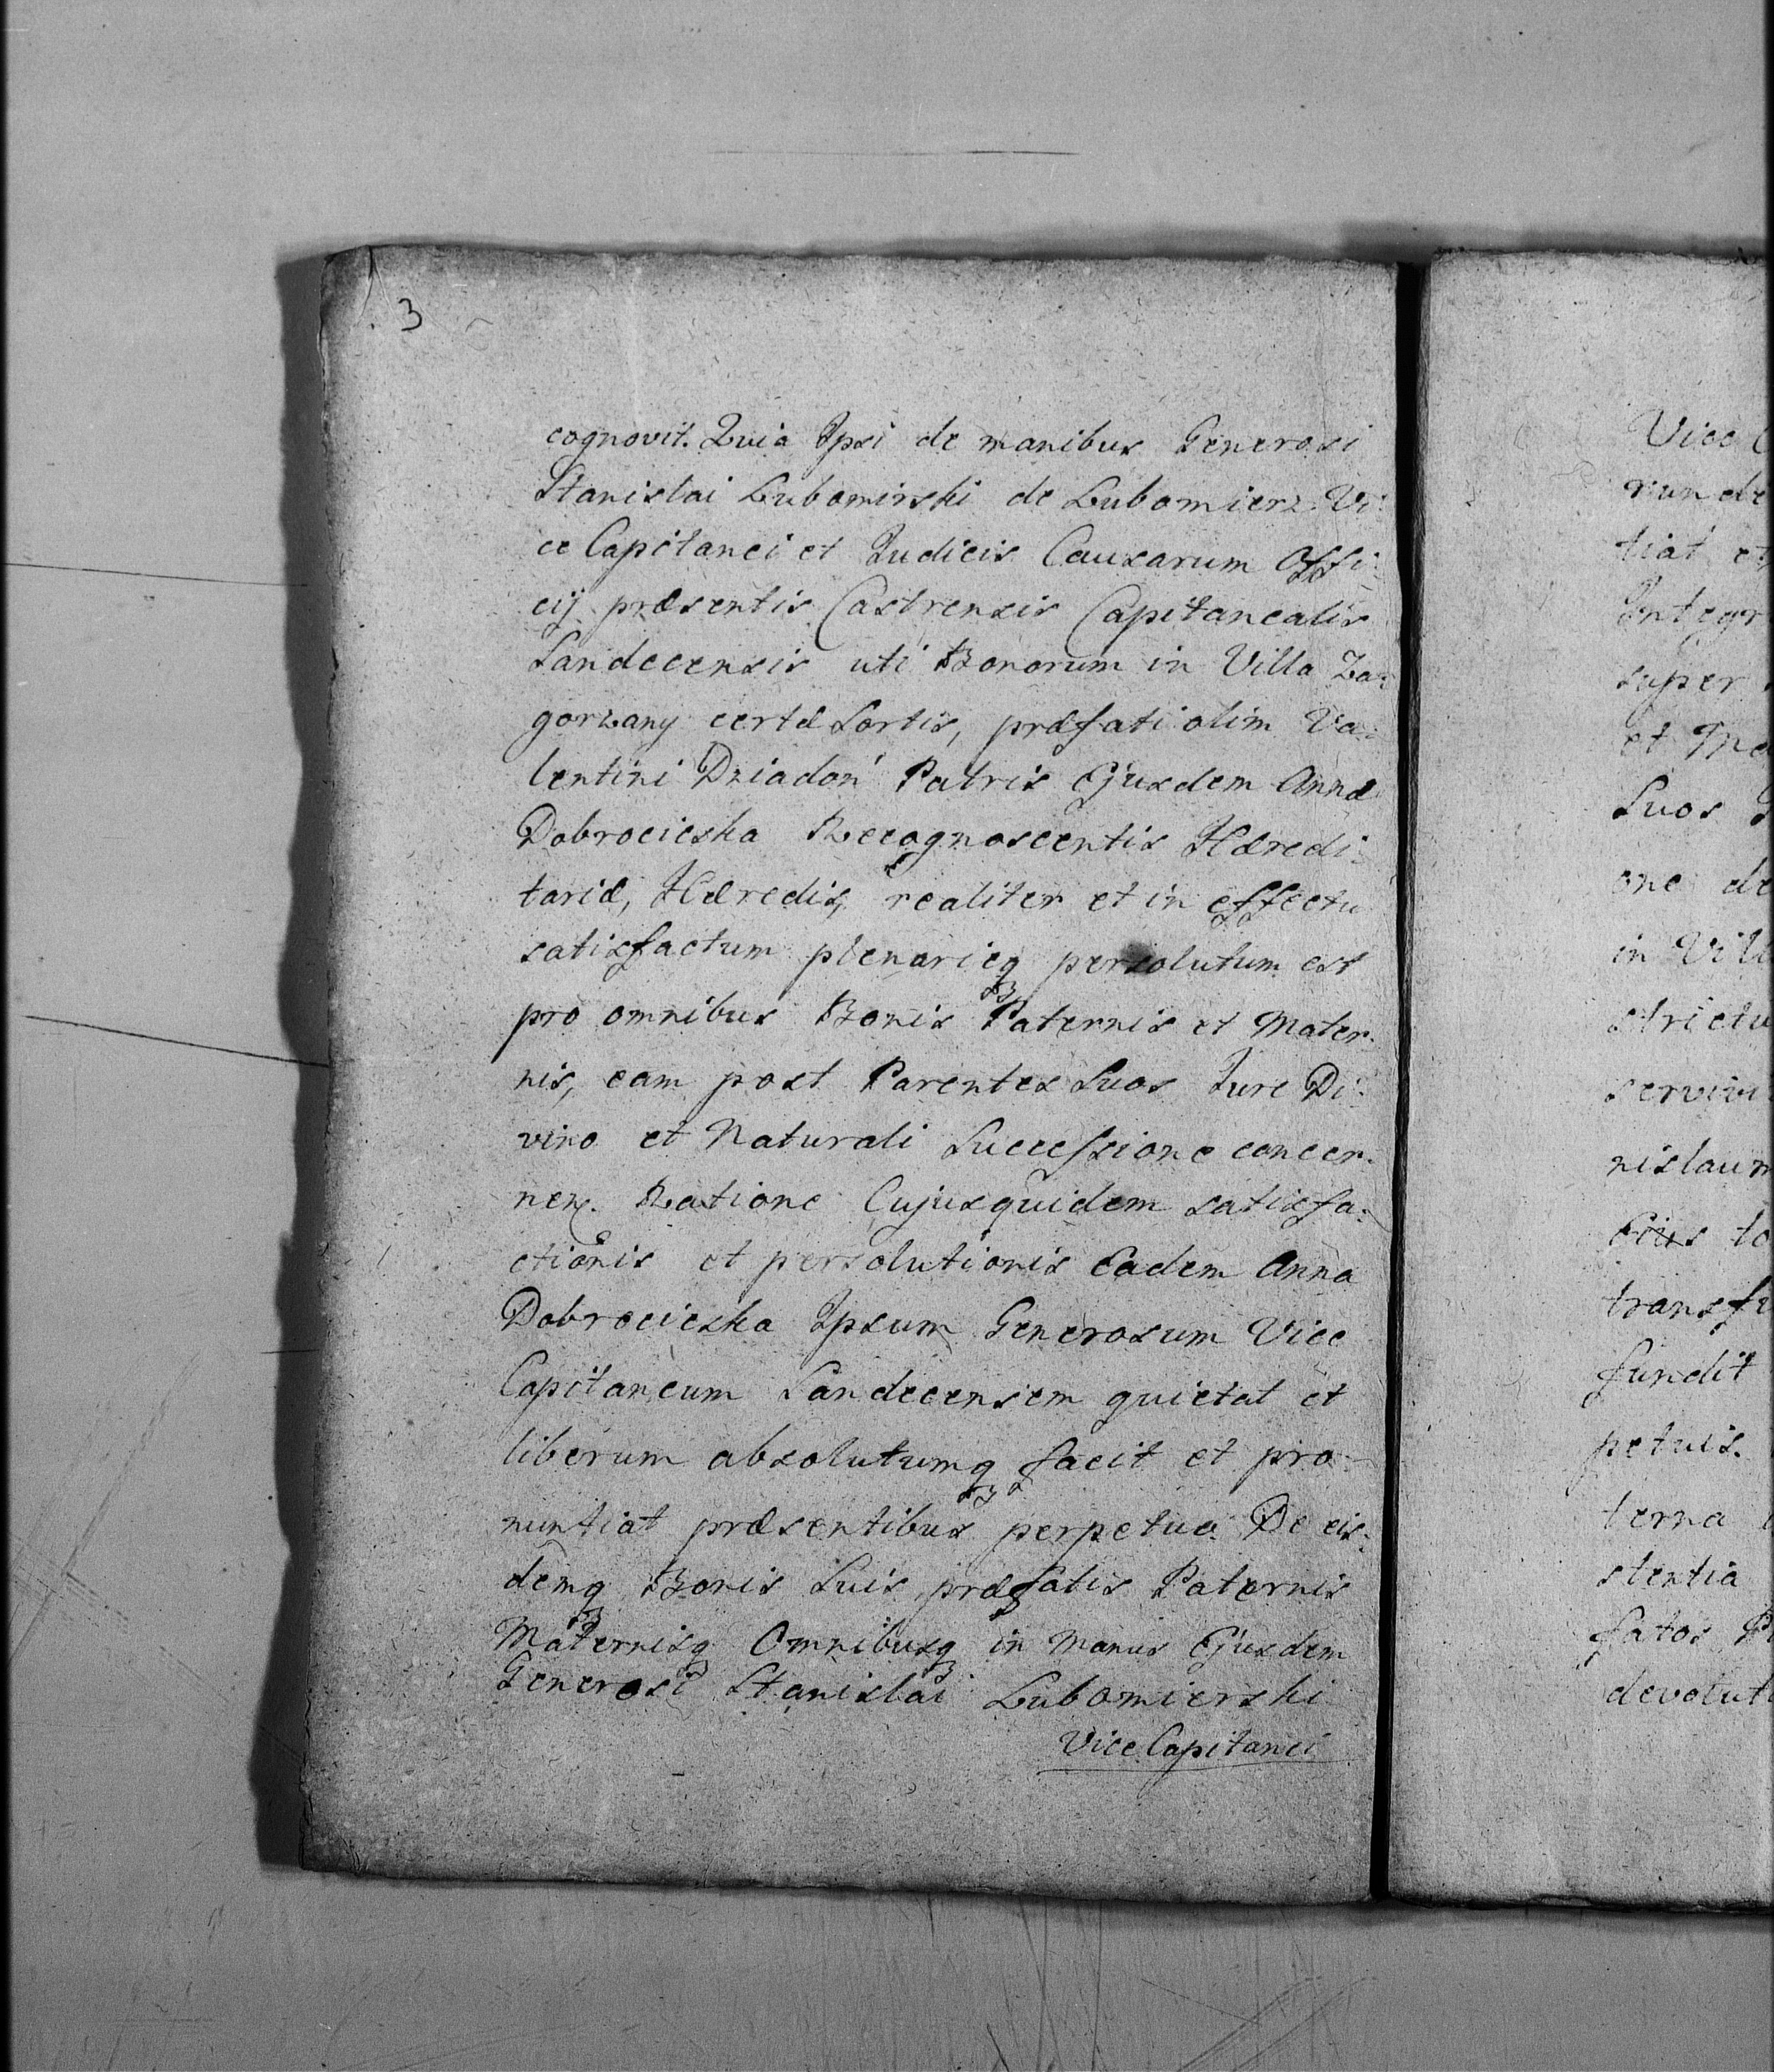 3
cognovit. Quia Ipsi de manibus Generosi
Stanislai Lubomirski de Lubomierz Vi:
ce Capitanei et Judicis Causarum Offi:
cij præsentis Castrensis Capitanealis
Sandecensis uti Bonorum in Villa Za:
gorzany certæ Sortis, præfati olim Va:
lentini Dziadoń Patris Ejusdem Annæ
Dobrocieska Recognoscentis Hæredi:
tariæ, Hæredis, realiter et in effectu
satisfactum plenarieq3 persolutum est
pro omnibus Bonis Paternis et Mater:
nis, eam post Parentes Suos Jure Di:
vino et Naturali Successione concer:
nen. Ratione Cujusquidem satisfa:
ctionis et persolutionis Eadem Anna
Dobrocieska Ipsum Generosum Vice
Capitaneum Sandecensem quietat et
liberum absolutumq3 facit et pro
nuntiat præsentibus perpetuo. De eis:
demq3 Bonis Suis præfatis Paternis
Maternisq3 Omnibusq3 in Manus Ejusdem
Generosi Stanislai Lubomierski
Vice Capitanei
Vice
run de
tiat et
Integr
super
et Ma
Suos
one de
in Vill
strictu
servivi
nislaum
to
transfu
fundit
petuis.
terna
stentia
fatos
devolut